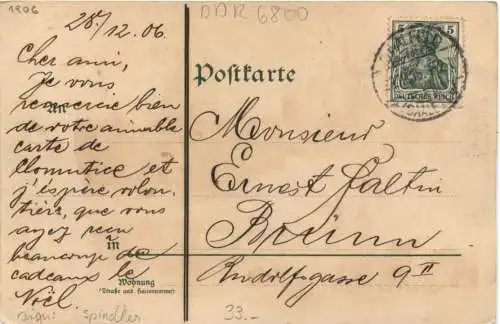 1906
DDR 6800
28/12.06.
Cher ami,
Je vous
remercie bien
de votre aimable
carte de
et
j'espère volon-
tière, que vous
ayez reçu
beaucoup de
cadeaux le
Noël.
sign: Spindler
Postkarte
An
in
Wohnung
(Straße und Hausnummer)
5 5
DEUTSCHES REICH
Monsieur
Ernest Faltin
Brünn
Rudolfsgasse 9 II
33.-